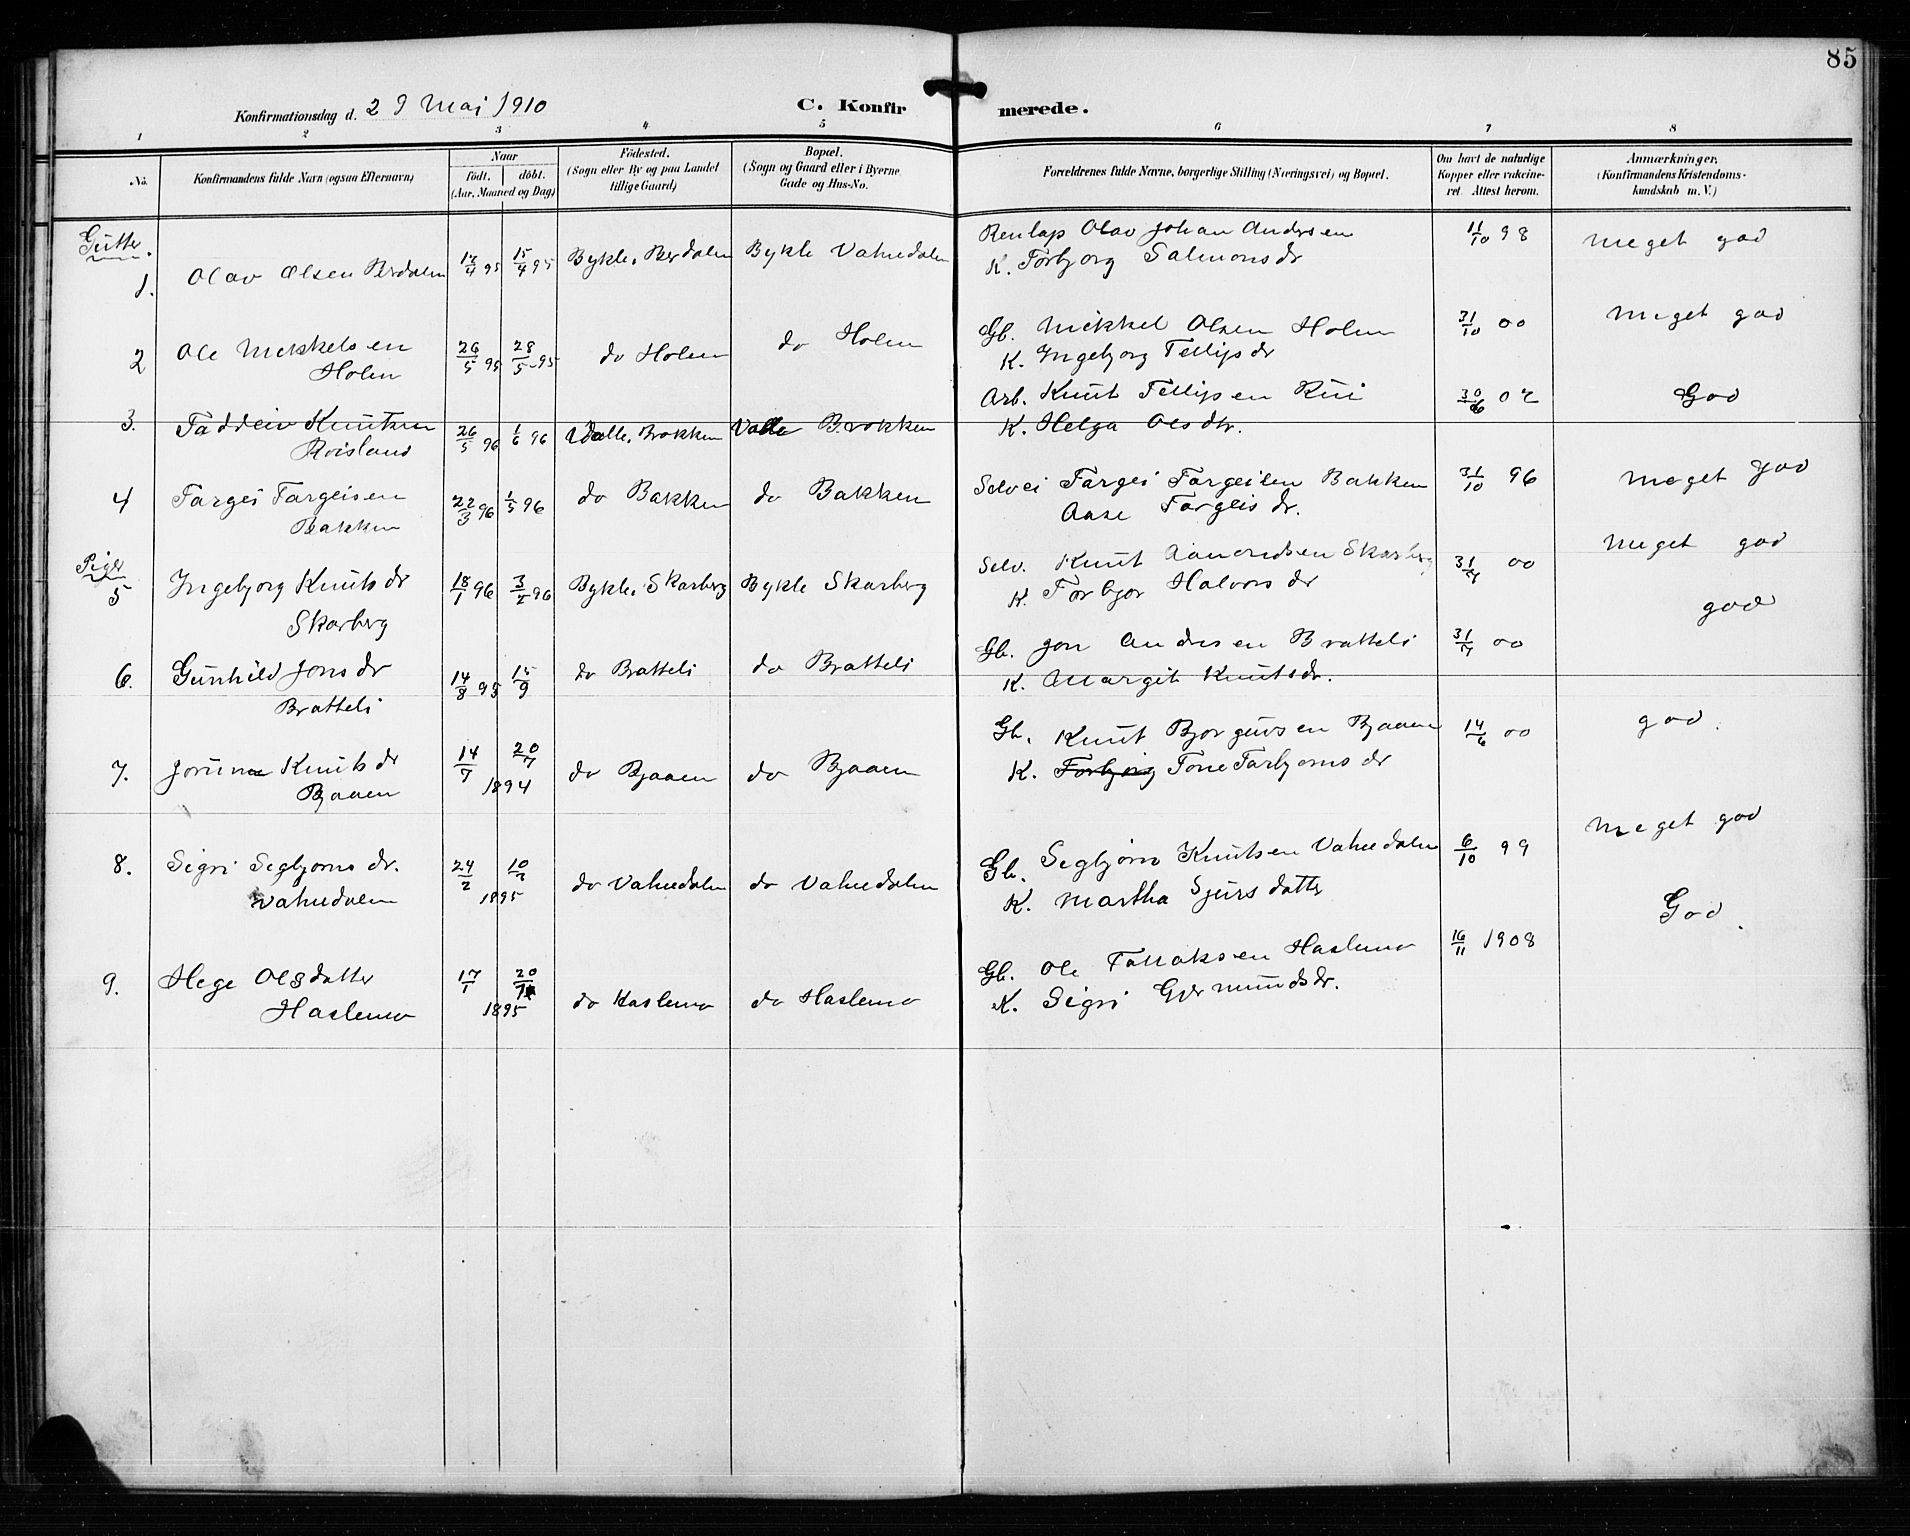 85
Konfirmationsdag d. 29 Mai 1910
C. Konfirmerede.
1 2 3 4 5 6 7 8
No.
Konfirmandens fulde Navn (ogsaa Efternavn)
Naar
födt. döbt.
(Aar, Maaned og Dag)
Födested.
(Sogn eller By og paa Landet
tillige Gaard)
Bopæl.
(Sogn og Gaard eller i Byerne
Gade og Hus-No.
Forældrenes fulde Navne, borgerlige Stilling (Næringsvei) og Bopæl.
Om havt de naturlige
Kopper eller vakcine-
ret. Attest herom.
Anmærkninger.
(Konfirmandens Kristendoms-
kundskab m. V.)
Gutter.
1. Olav Olsen Berdalen 14/4 95 15/4 95 Bykle, Berdalen Bykle Vatnedalen Olav Johan Andersen 11/10 98 Meget god
K. Torbjorg Salmonsdr
2 Ole Mikkelsen 26/5 95 28/5-95 do Holen do Holen Gb. Mikkel Olsen Holen 31/10 00 Meget god
Holen K. Ingebjorg Tellefsdr
3. Taddeiv Knutsen 26/5 96 1/6 96 Valle, Brokken Valle Brokken Arb. Knut Tellefsen Rui 30/6 02 God
Roisland K. Helga Olsdtr.
4 Targei Targeisen 22/3 96 1/5 96 do Bakken do Bakken Selvei Targei Targeisen Bakken 31/10 96 Meget god
Bakken Aase Targeisdr.
Piger
5 Ingebjorg Knutsdr 18/1 96 3/2 96 Bykle, Skarberg Bykle Skarberg Selv. Knut Aamundsen Skarberg 31/7 00 Meget god
Skarberg K. Torbjor Halvorsdr
6. Gunhild Jonsdr 14/8 95 15/9 do Bratteli do Bratteli Gb. Jon Andersen Bratteli 31/7 00 god
Bratteli K. Margit Knutsdr.
7. Jorun Knutsdr 14/7 20/7 1894 do Bjaaen do Bjaaen Gb. Knut Bjorgusen Bjaaen 14/6 00 god.
Bjaaen K. Torbjorg Tone Tarbjornsdr
8. Sigri Segbjornsdr. 24/2 10/3 1895 do Vatnedalen do Vatnedalen Gb. Segbjorn Knutsen Vatnedalen 6/10 99 Meget god
Vatnedalen K. Martha Sjursdatter
9. Hege Olsdatter 17/1 20/1 1895 do Haslemo do Haslemo Gb. Ole Tallaksen Haslemo 16/11 1908 God.
Haslemo K. Sigri Gjermundsdr.